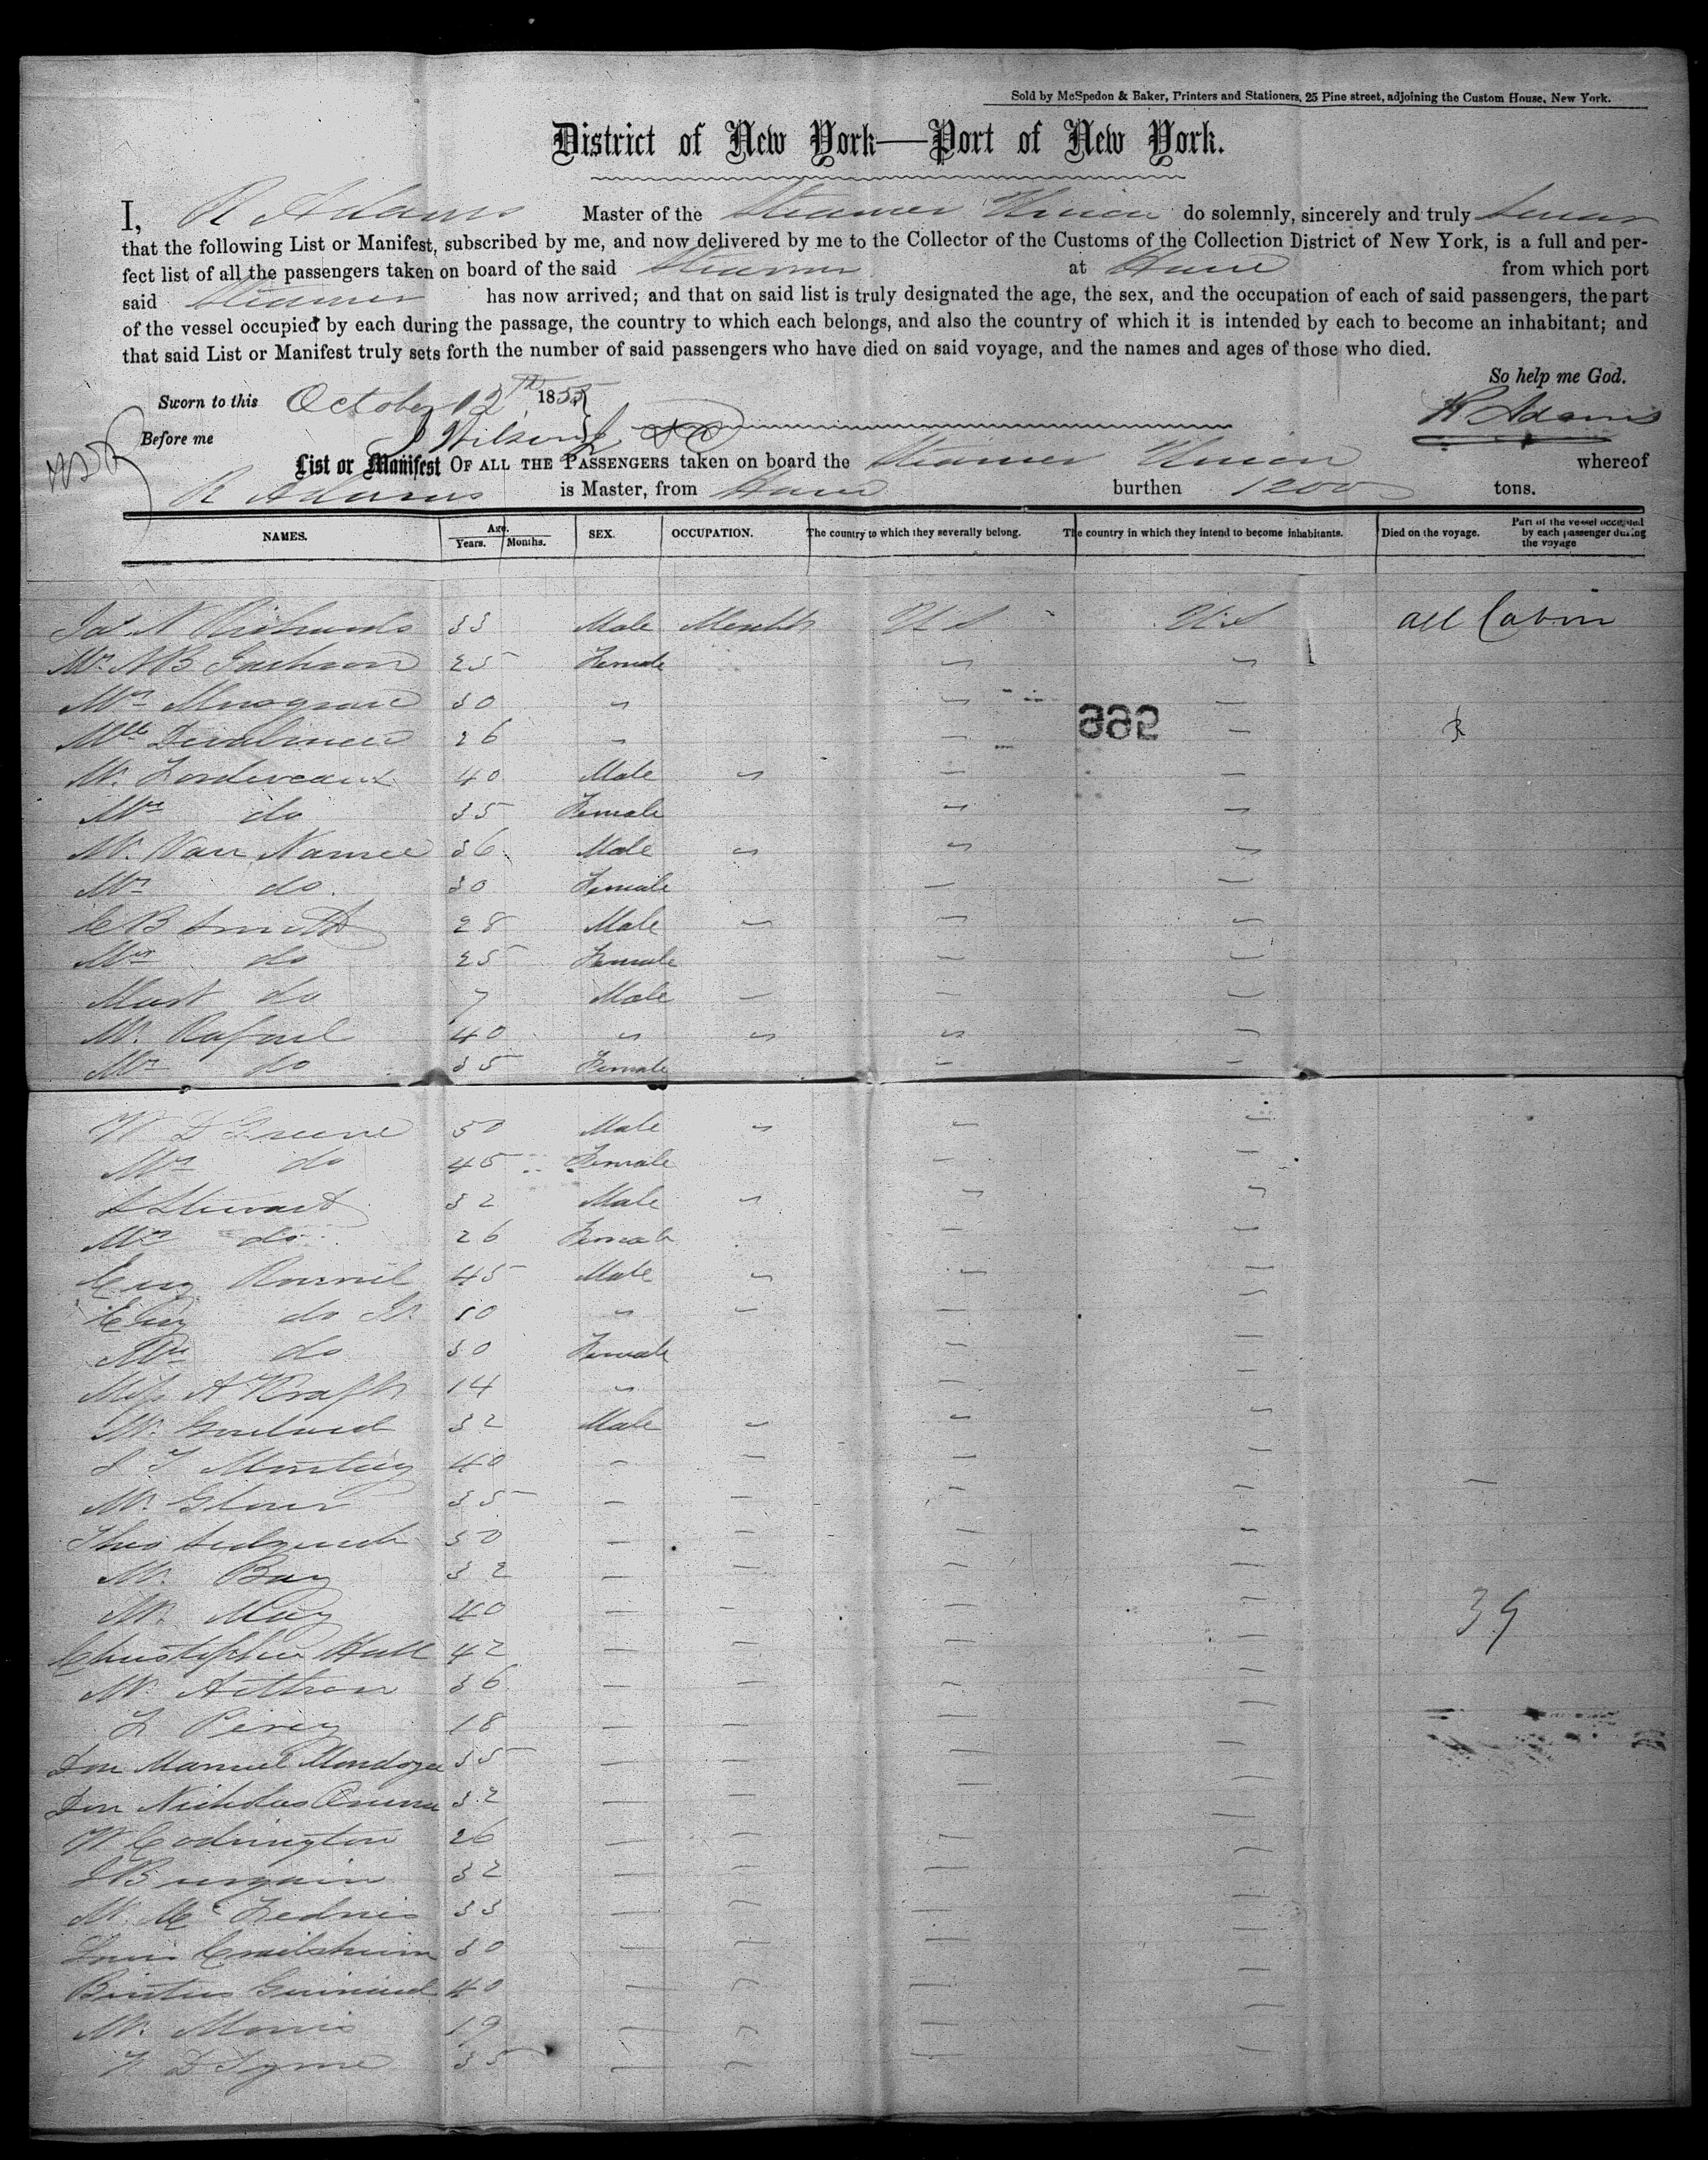 Sold by McSpedon & Baker, Printers and Stationers, 25 Pine street, adjoining the Custom House, New York.
District of New York—Port of New York.
I, R Adams Master of the Steamer Union do solemnly, sincerely and truly Swear
that the following List or Manifest, subscribed by me, and now delivered by me to the Collector of the Customs of the Collection District of New York, is a full and per-
fect list of all the passengers taken on board of the said Steamer at Havre from which port
said Steamer has now arrived; and that on said list is truly designated the age, the sex, and the occupation of each of said passengers, the part
of the vessel occupied by each during the passage, the country to which each belongs, and also the country of which it is intended by each to become an inhabitant; and
that said List or Manifest truly sets forth the number of said passengers who have died on said voyage, and the names and ages of those who died.
So help me God.
Sworn to this October 12th 1855
R Adams
Before me
List or Manifest OF ALL THE PASSENGERS taken on board the Steamer Union whereof
R Adams is Master, from Havre burthen 1200 tons.
NAMES. Age. Years. Months. SEX. OCCUPATION. The country to which they severally belong. The country in which they intend to become inhabitants. Died on the voyage. Part of the vessel occupied by each passenger during the voyage
Jas. N Richards 33 Male U S U.S all Cabin
Mrs N B Jackson 25 Female
Mrs Musgrave 30 "
Mlle 26 "
996
M. 40 Male "
Mrs do 35 Female
M. Van Namee 36 Male "
Mrs do 30 Female
C B Smith 28 Male "
Mrs do 25 Female
Mast do 7 Male
M. Rafael 40 " "
Mrs do 35 Female
W D Greene 50 Male "
Mrs do 45 Female
S Stewart 32 Male "
Mrs do 26 Female
Eug 45 Male "
Eug do Jr. 10 "
Mrs do 30 Female
Miss A Krafft 14 "
M. 32 Male "
40
M. Glover 35
Thos 50
M. Bay 32
M. May 40
39
Christopher Hall 42
M. 36
18
Don Manuel Mendoza 35
Don Nicholas 32
W Codrington 26
32
M. Mc 33
Louis 30
40
M. Morris 19
D Syme 35